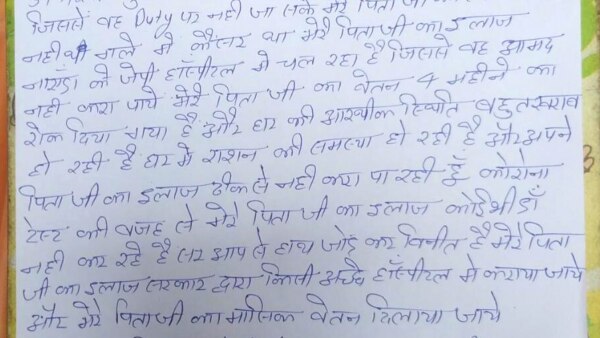 जिससे वह Duty पर नही जा सके मेरे पिता जी
नही थी गले मे कैंसर था मेरे पिता जी का इलाज
नायडा के जेपी हॉस्पीटल मे चल रहा है जिससे वह आमद
नही करा पाये मेरे पिता जी का वेतन 4 महीने का
रोक दिया गया है और घर की आर्थीक स्थिति बहुत खराब
हो रही है घर मे राशन की समस्या हो रही है और अपने
पिता जी का इलाज ठीक से नही करा पा रही हूँ कोरोना
टेस्ट की वजह से मेरे पिता जी का इलाज कोई भी डॉ
नही कर रहे है सर आप से हाथ जोड़ कर विनीत है मेरे पिता
जी का इलाज सरकार द्वारा किसी अच्छे हॉस्पीटल मे कराया जाये
और मेरे पिता जी का मासिक वेतन दिलाया जाये